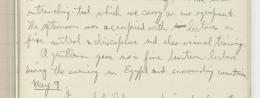 entrenching tool which we carry on our equipment.
The afternoon was occupied with lecture on
fire control & discipline and also visual training.
A gentleman gave us a fine lantern lecture
during the evening on Egypt and surrounding countries.
May 9.